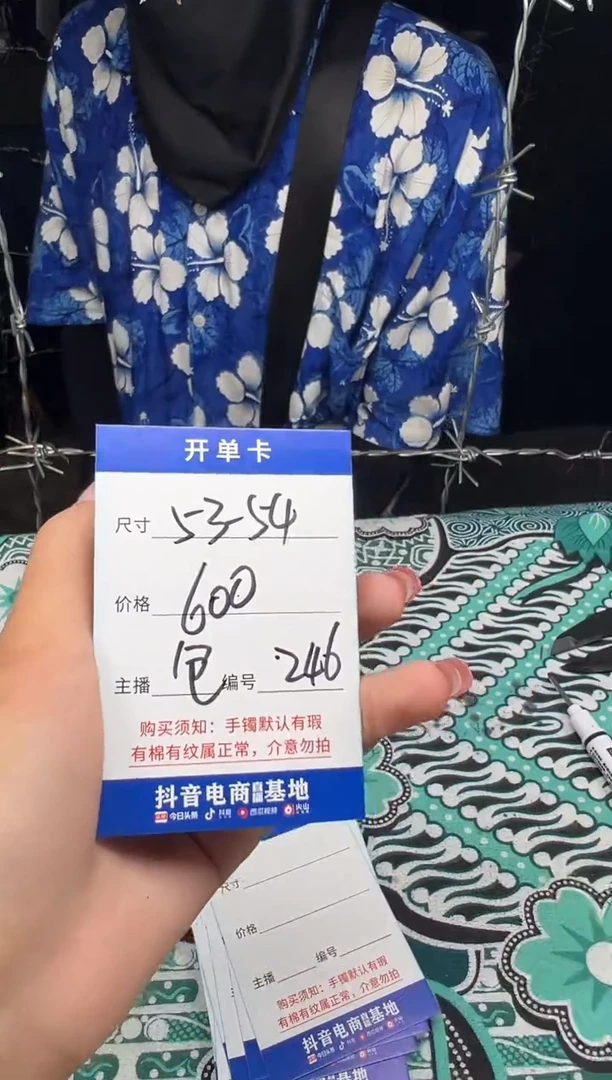 开单卡
尺寸 53-54
价格 600
主播 包 编号 246
购买须知：手镯默认有瑕
有棉有纹属正常，介意勿拍
抖音电商直播基地
今日头条 抖音 西瓜视频 火山
尺寸
价格
主播 编号
购买须知：手镯默认有瑕
有棉有纹属正常，介意勿拍
抖音电商直播基地
今日头条
基地